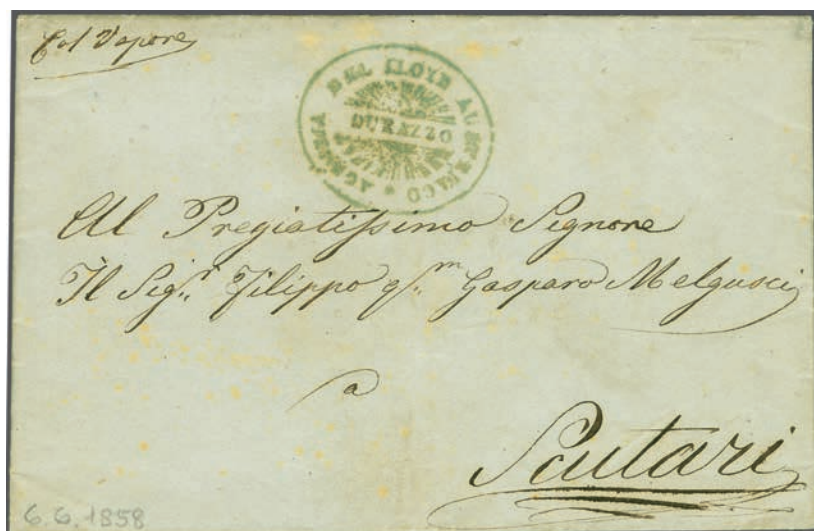 Col Vapore
AGENZIA DEL LLOYD AUSTRIACO
DURAZZO
Al Pregiatissimo Signore
Il Sig.r Filippo q.m Gasparo Melgusci
a
Scutari
6.6.1858